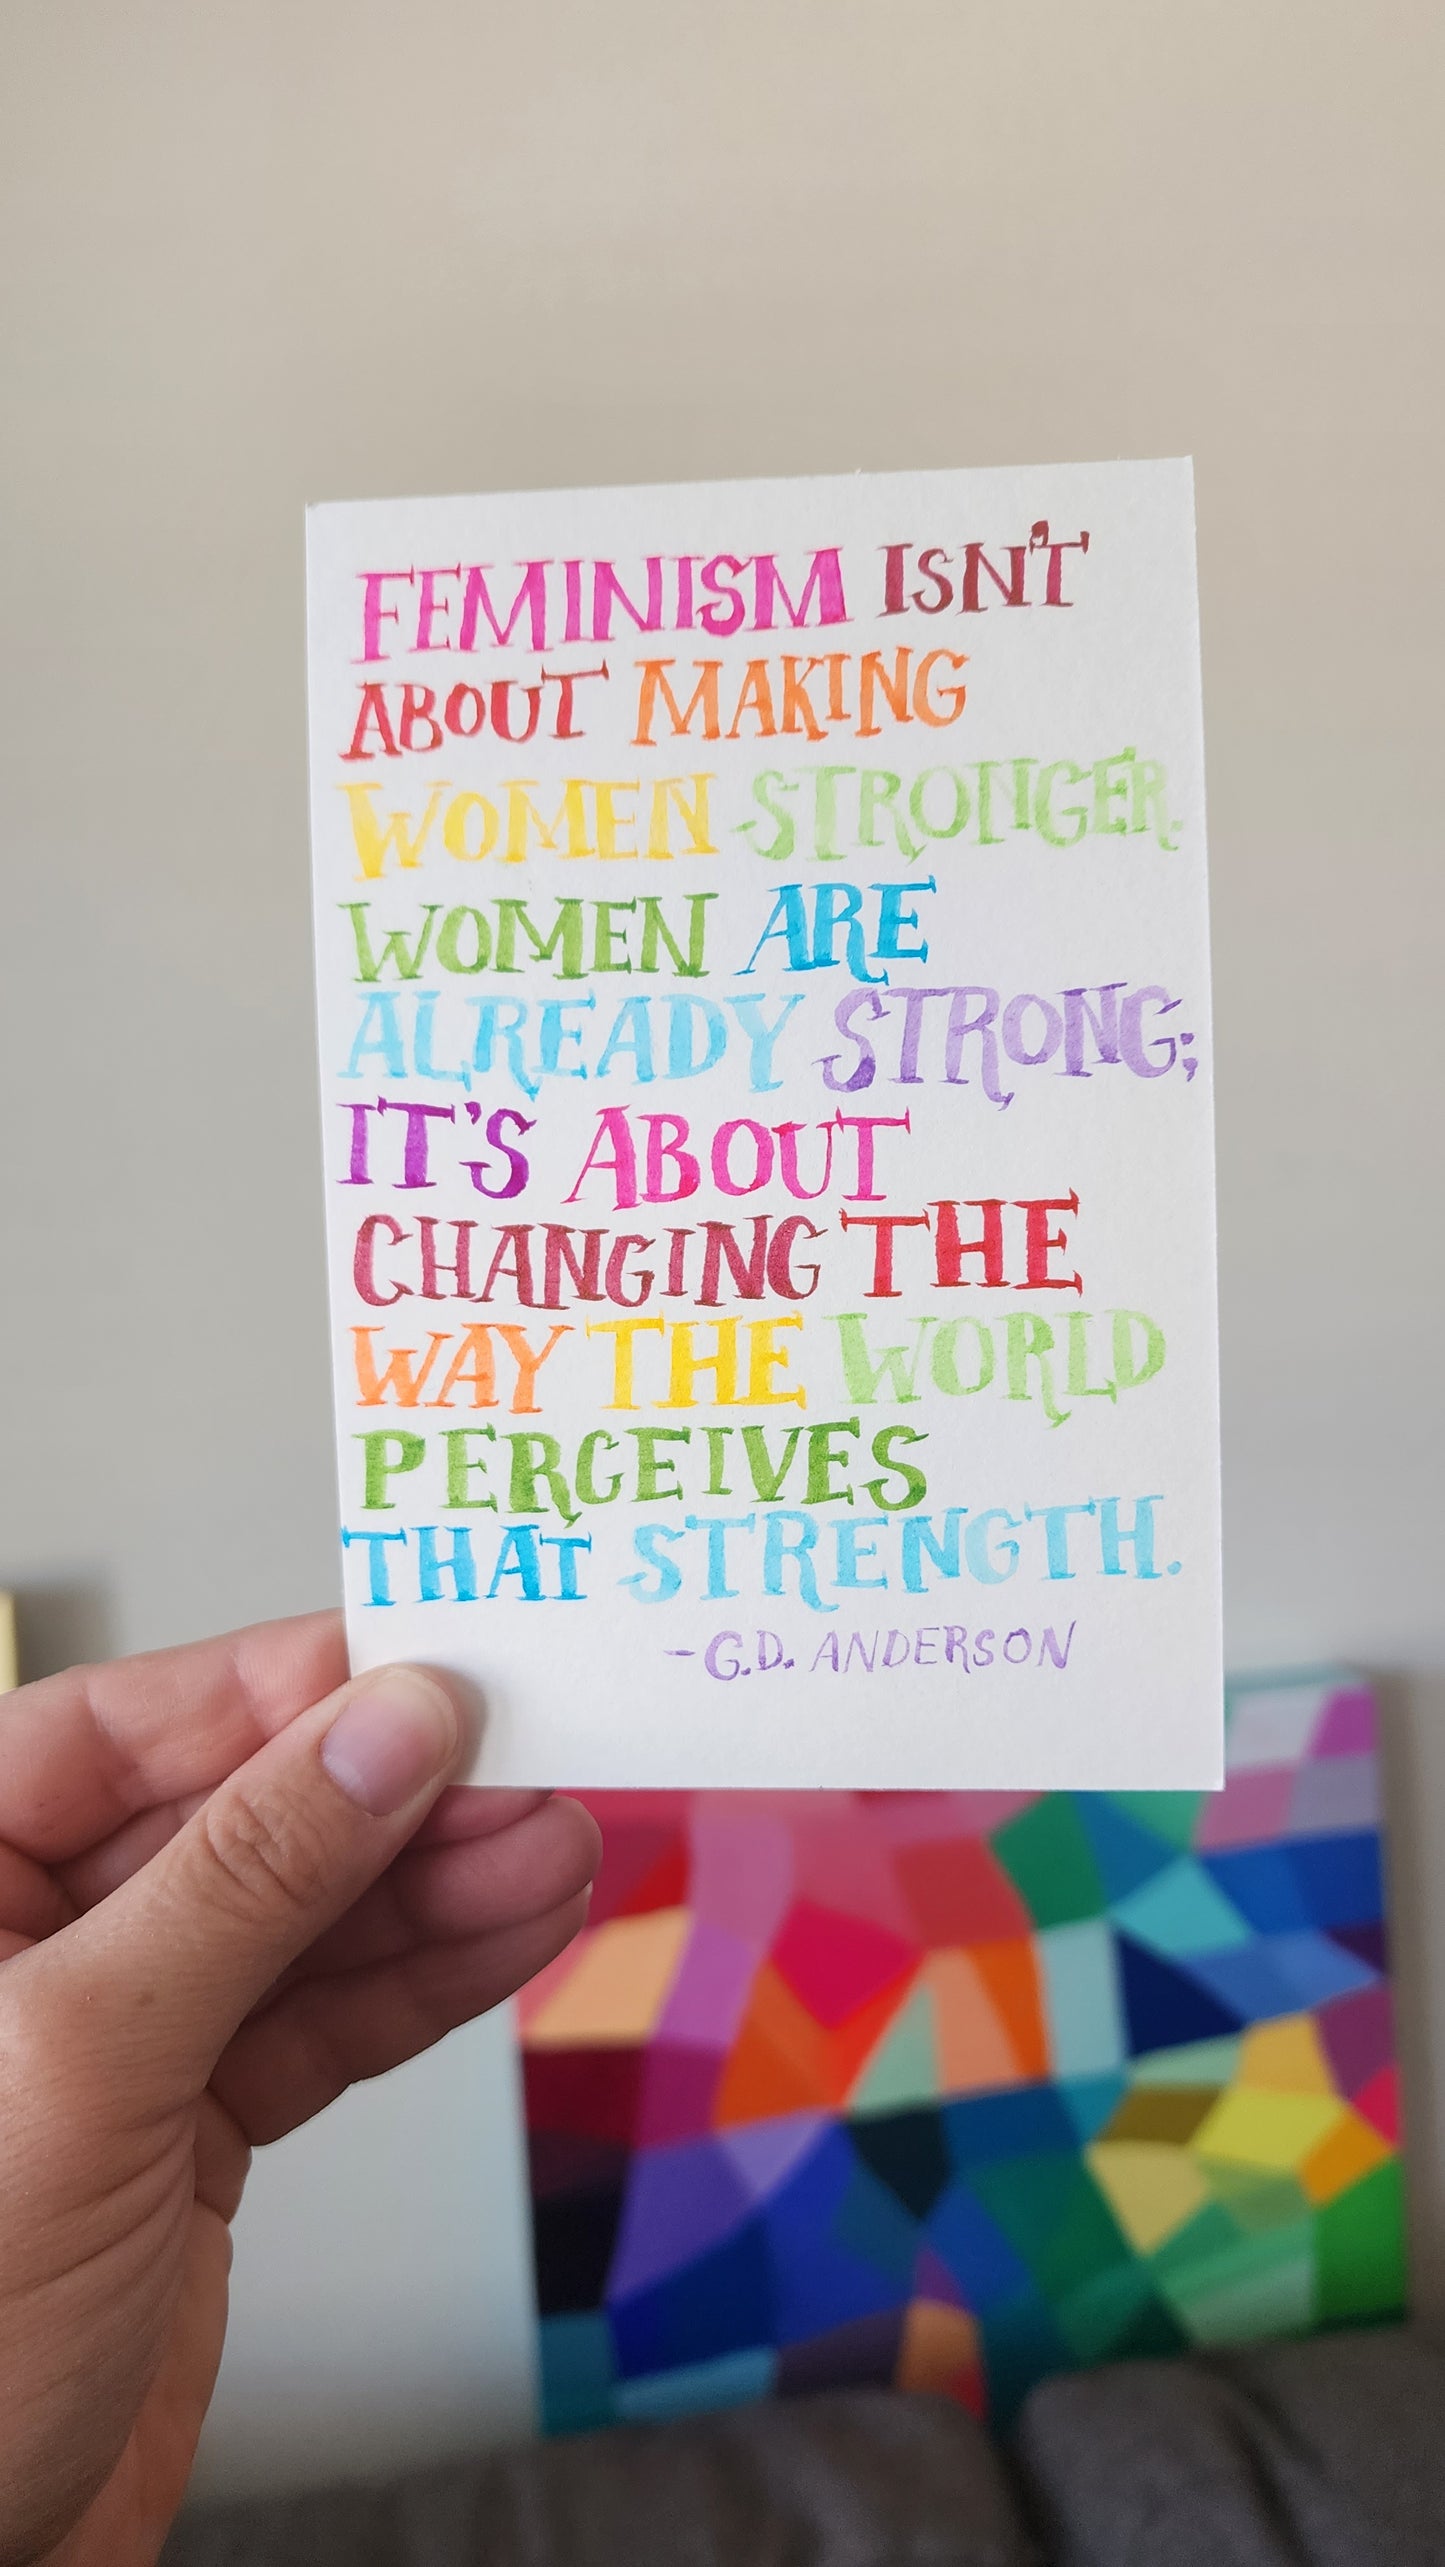 FEMINISM ISN'T
ABOUT MAKING
WOMEN STRONGER.
WOMEN ARE
ALREADY STRONG;
IT'S ABOUT
CHANGING THE
WAY THE WORLD
PERCEIVES
THAT STRENGTH.
-G.D. ANDERSON